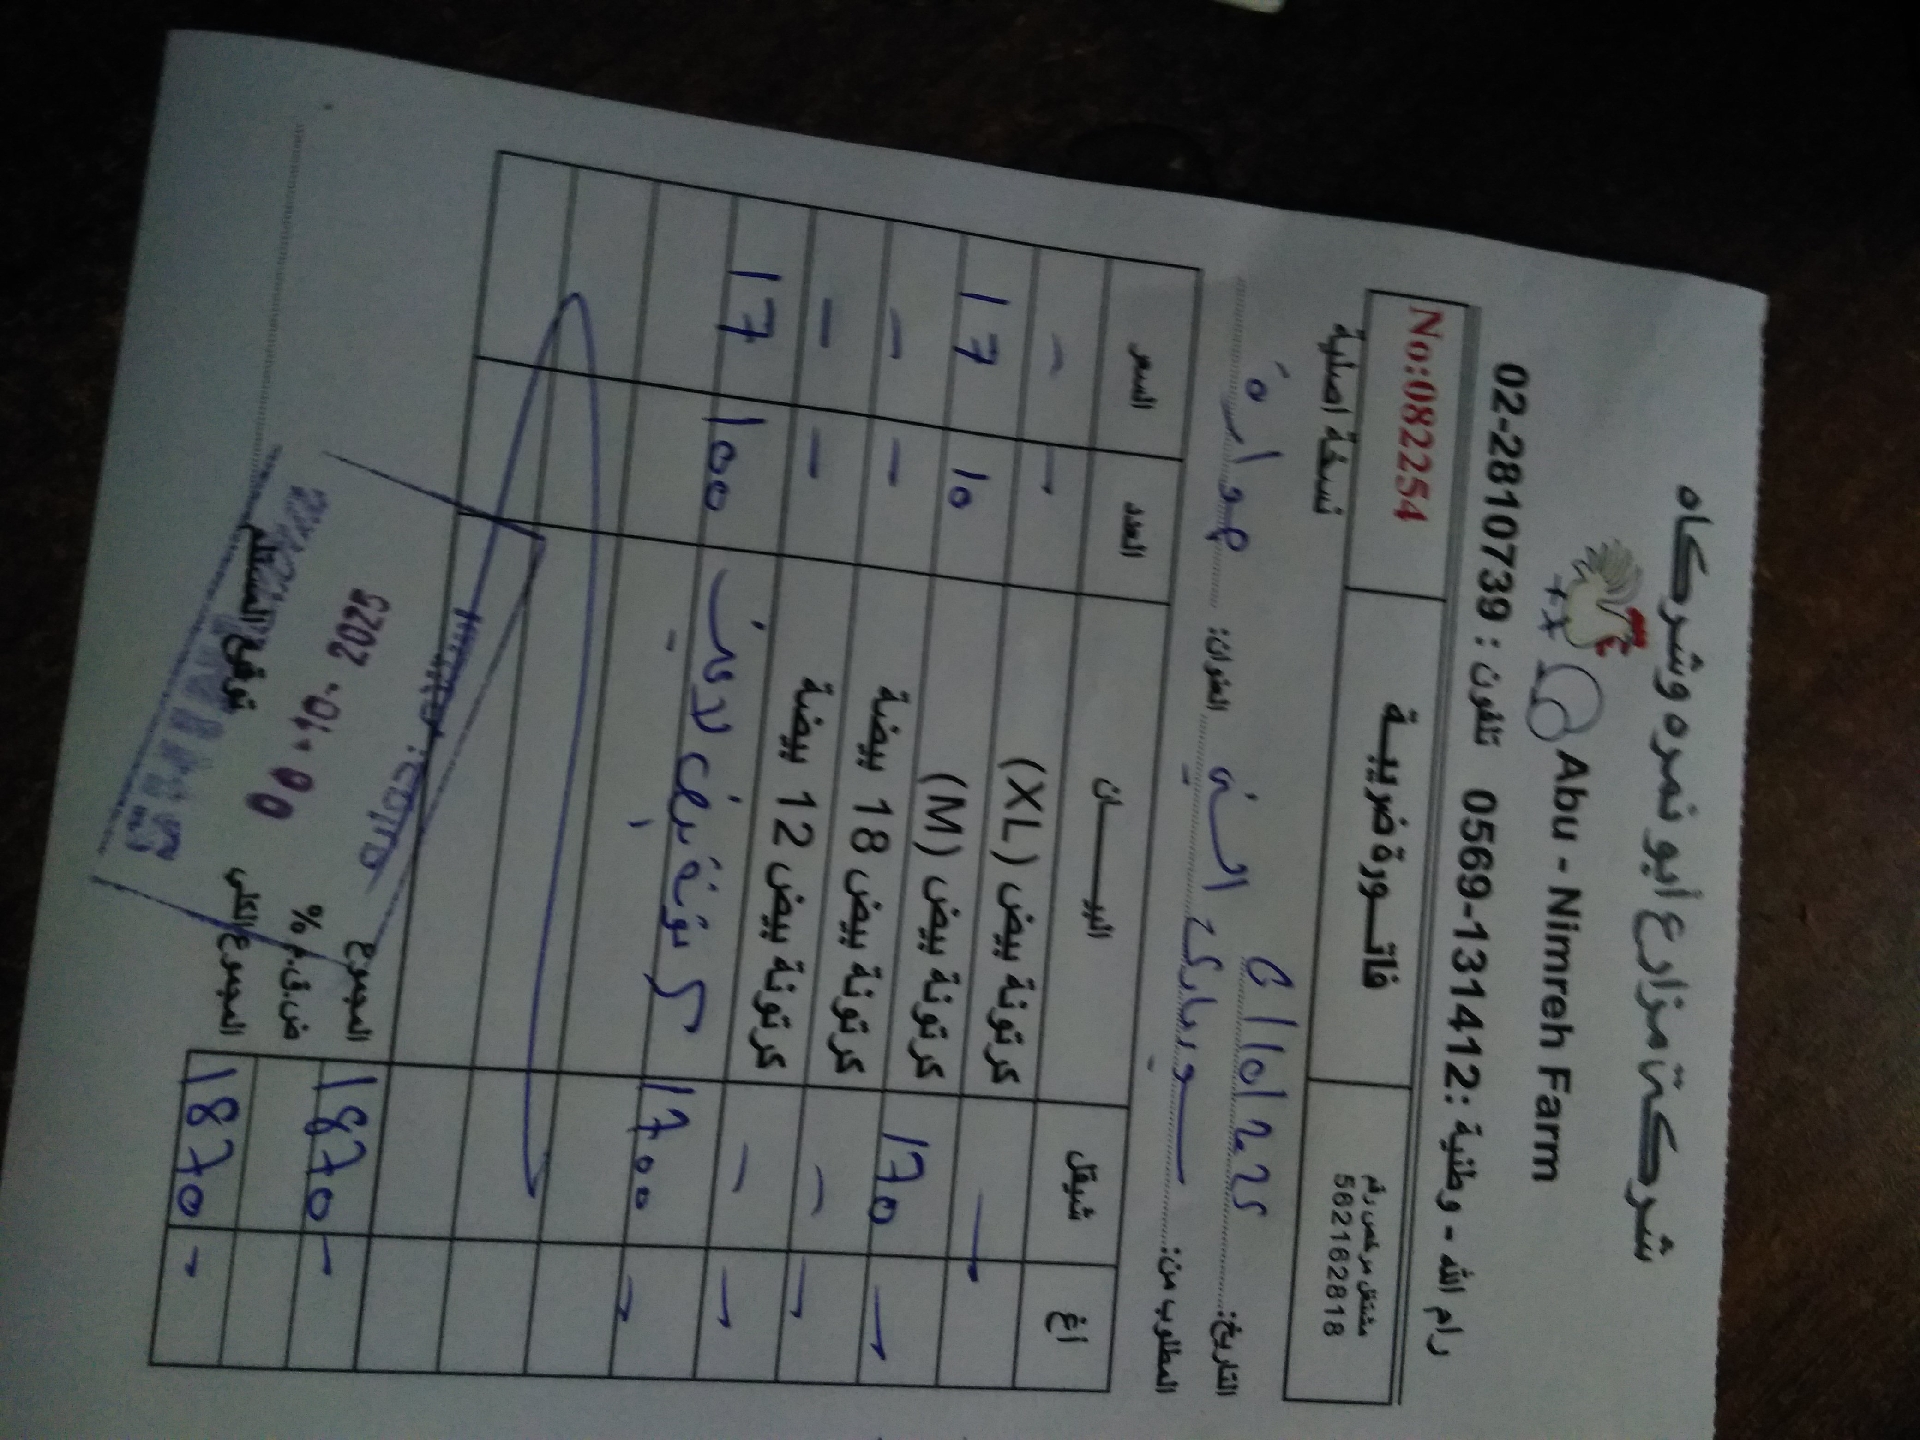 شركة مزارع أبو نمره وشركاه
Abu - Nimreh Farm
رام الله - وطنية : 0569-131412 تلفون : 02-2810739
مشتغل مرخص رقم
562162818
فاتـــورة ضريبيـــة
No:082254
نسخة اصلية
التاريخ: 2025/10/5
العنوان: حوارة
المطلوب من: سوبرماركت
اغ شيقل البيـــــــان العدد السعر
- - كرتونة بيض (XL) - -
- 170 كرتونة بيض (M) 10 17
- - كرتونة بيض 18 بيضة - -
- - كرتونة بيض 12 بيضة - -
- 1700 كرتونة بيض 100 17
- 1870 المجموع
ض.ق.م %
- 1870 المجموع الكلي
توقيع المستلم
-10- 2025